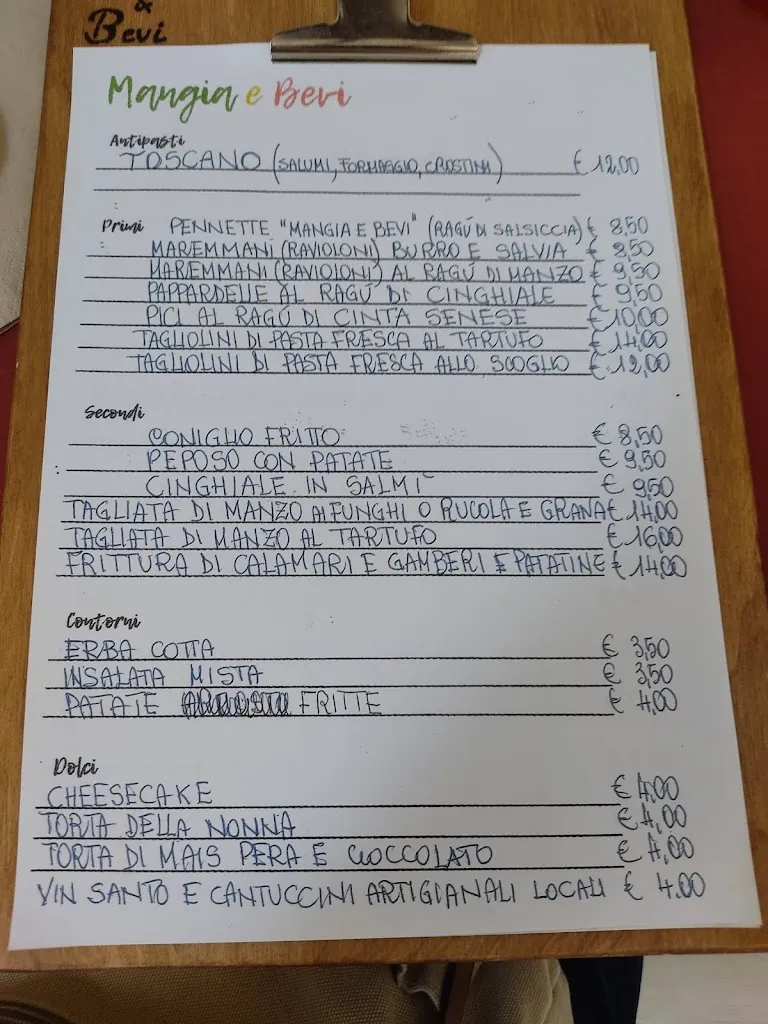 &
Bevi
Mangia e Bevi
Antipasti
TOSCANO (SALUMI, FORMAGGIO, CROSTINI) € 12,00
Primi PENNETTE "MANGIA E BEVI" (RAGÚ DI SALSICCIA) € 8,50
MAREMMANI (RAVIOLONI) BURRO E SALVIA € 8,50
MAREMMANI (RAVIOLONI) AL RAGÚ DI MANZO € 9,50
PAPPARDELLE AL RAGÚ DI CINGHIALE € 9,50
PICI AL RAGÚ DI CINTA SENESE € 10,00
TAGLIOLINI DI PASTA FRESCA AL TARTUFO € 14,00
TAGLIOLINI DI PASTA FRESCA ALLO SCOGLIO € 12,00
Secondi
CONIGLIO FRITTO € 8,50
PEPOSO CON PATATE € 9,50
CINGHIALE IN SALMÌ € 9,50
TAGLIATA DI MANZO AI FUNGHI O RUCOLA E GRANA € 14,00
TAGLIATA DI MANZO AL TARTUFO € 16,00
FRITTURA DI CALAMARI E GAMBERI E PATATINE € 14,00
Contorni
ERBA COTTA € 3,50
INSALATA MISTA € 3,50
PATATE FRITTE € 4,00
Dolci
CHEESECAKE € 4,00
TORTA DELLA NONNA € 4,00
TORTA DI MAIS PERA E CIOCCOLATO € 4,00
VIN SANTO E CANTUCCINI ARTIGIANALI LOCALI € 4.00